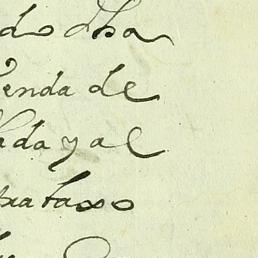 do dha
enda de
da y al
trataxo